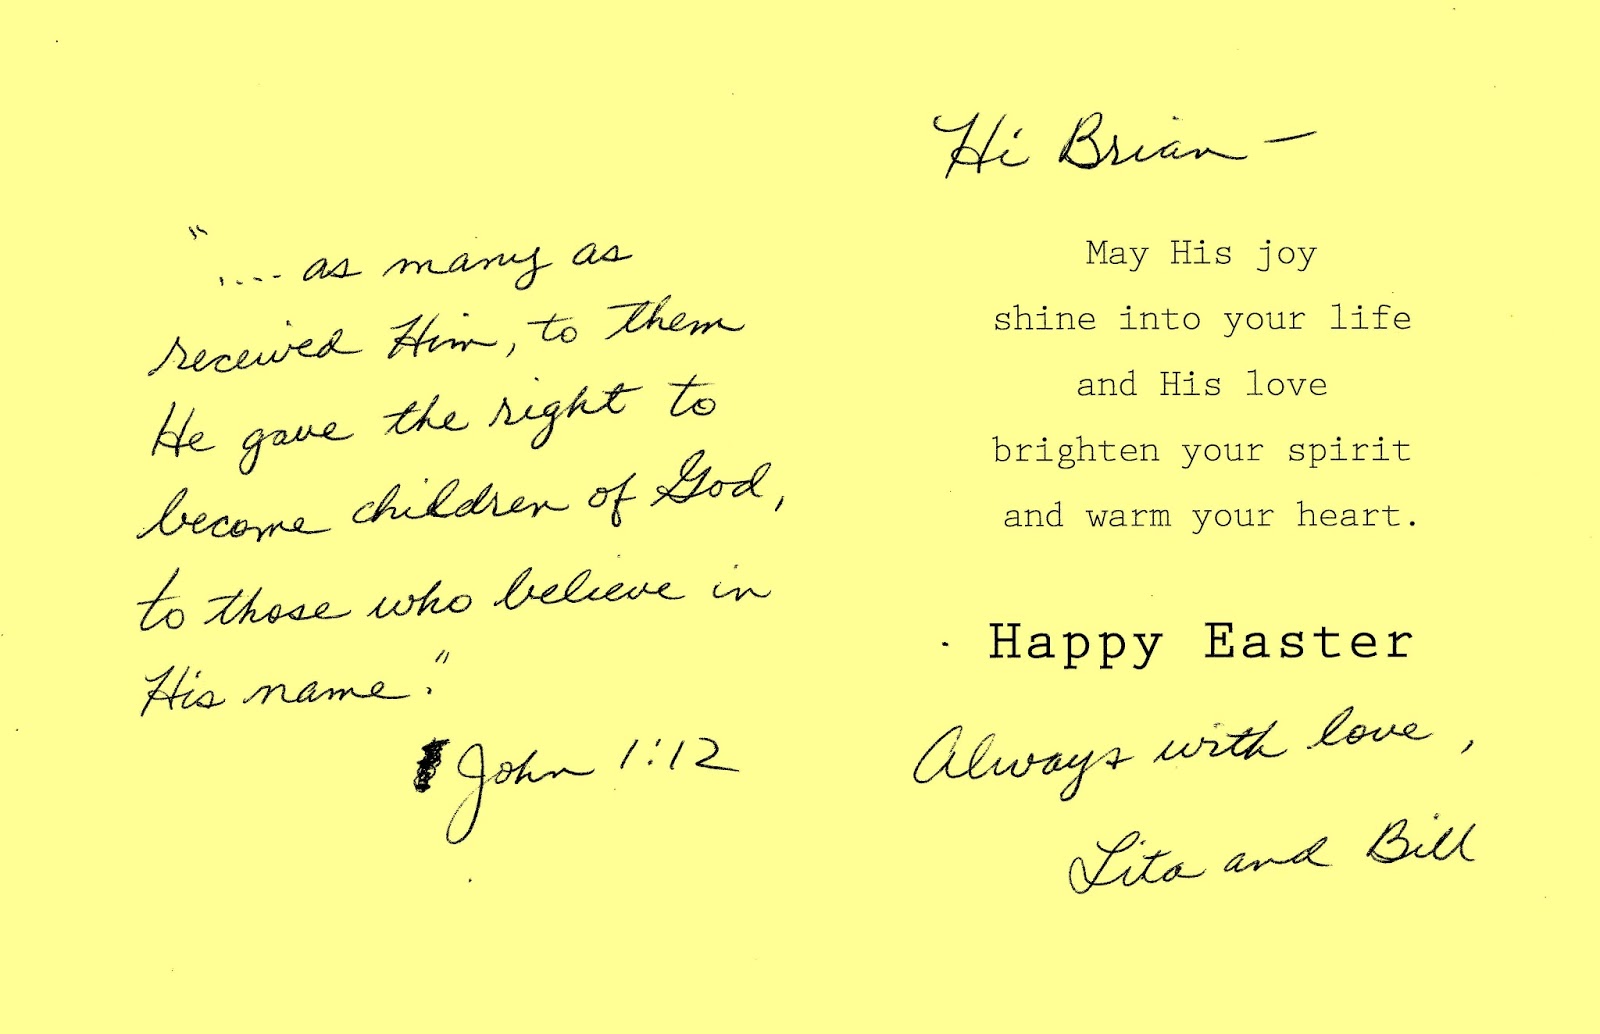 ".... as many as
received Him, to them
He gave the right to
become children of God,
to those who believe in
His name."
John 1:12
Hi Brian —
May His joy
shine into your life
and His love
brighten your spirit
and warm your heart.
Happy Easter
Always with love,
Lita and Bill